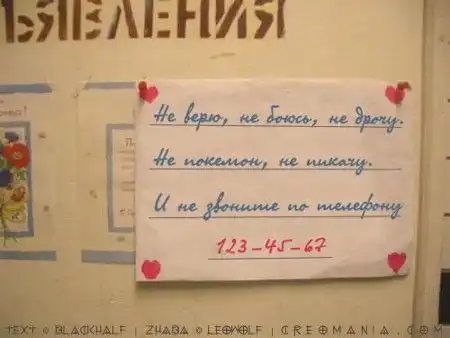 ЪЯВЛЕНИЯ
Не верю, не боюсь, не дрочу.
Не покемон, не пикачу.
И не звоните по телефону
123-45-67
TEXT © BLACKHALF | ZHABA © LEOWOLF | CREOMANIA.COM